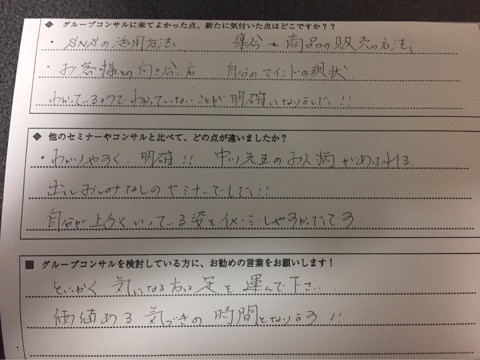 ◆ グループコンサルに来てよかった点、新たに気付いた点はどこですか？？
・SNSの活用方法、 集客→商品の販売の方法、
・お客様との向き合い方 自分のマインドの現状
わかっているようでわかっていないことが明確になりました!!
◆ 他のセミナーやコンサルと比べて、どの点が違いましたか？
・わかりやすく、明確!! 中川先生のお人柄があふれる
出しおしみなしのセミナーでした!!
自分が上手くいっている姿をイメージしやすかったです
■ グループコンサルを検討している方に、お勧めの言葉をお願いします！
とにかく気になる方は足を運んで下さい
価値ある気づきの時間となります!!